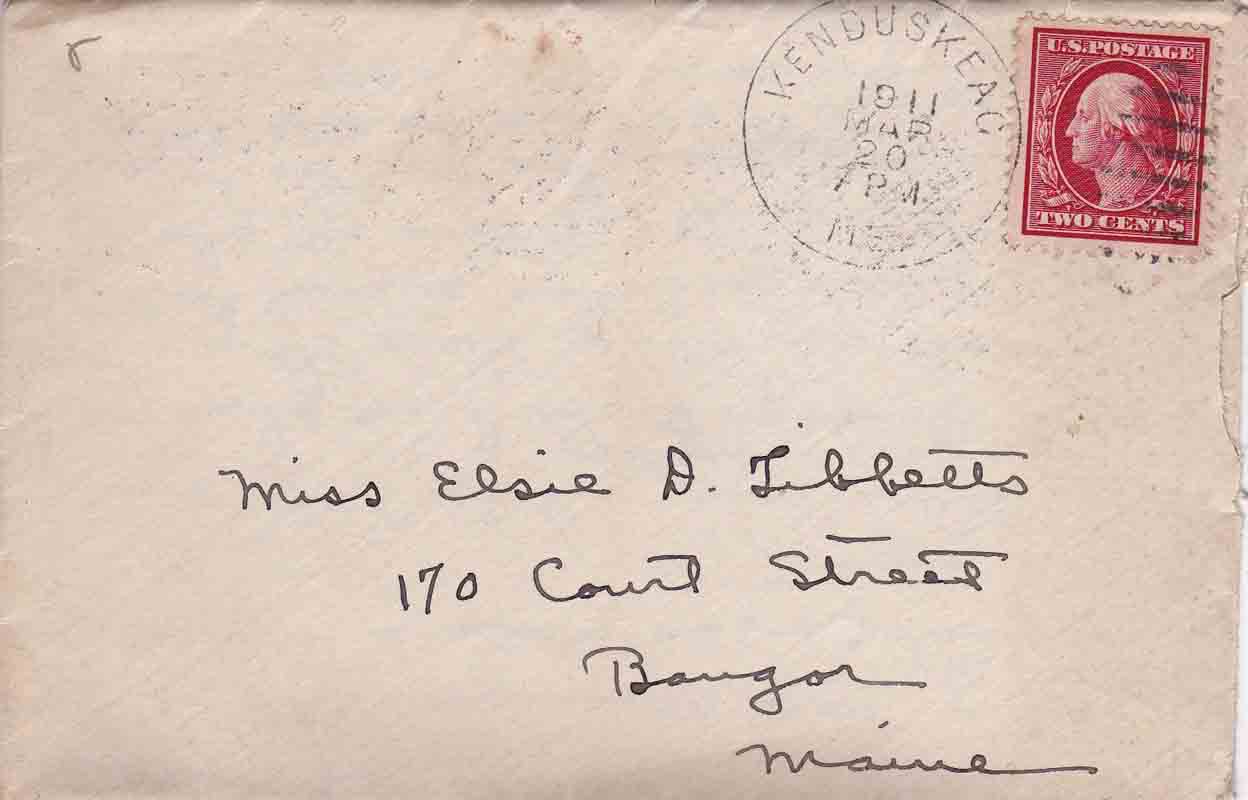 KENDUSKEAG
1911
MAR
20
7 PM
ME.
U.S. POSTAGE
TWO CENTS
Miss Elsie D. Tibbetts
170 Court Street
Bangor
Maine